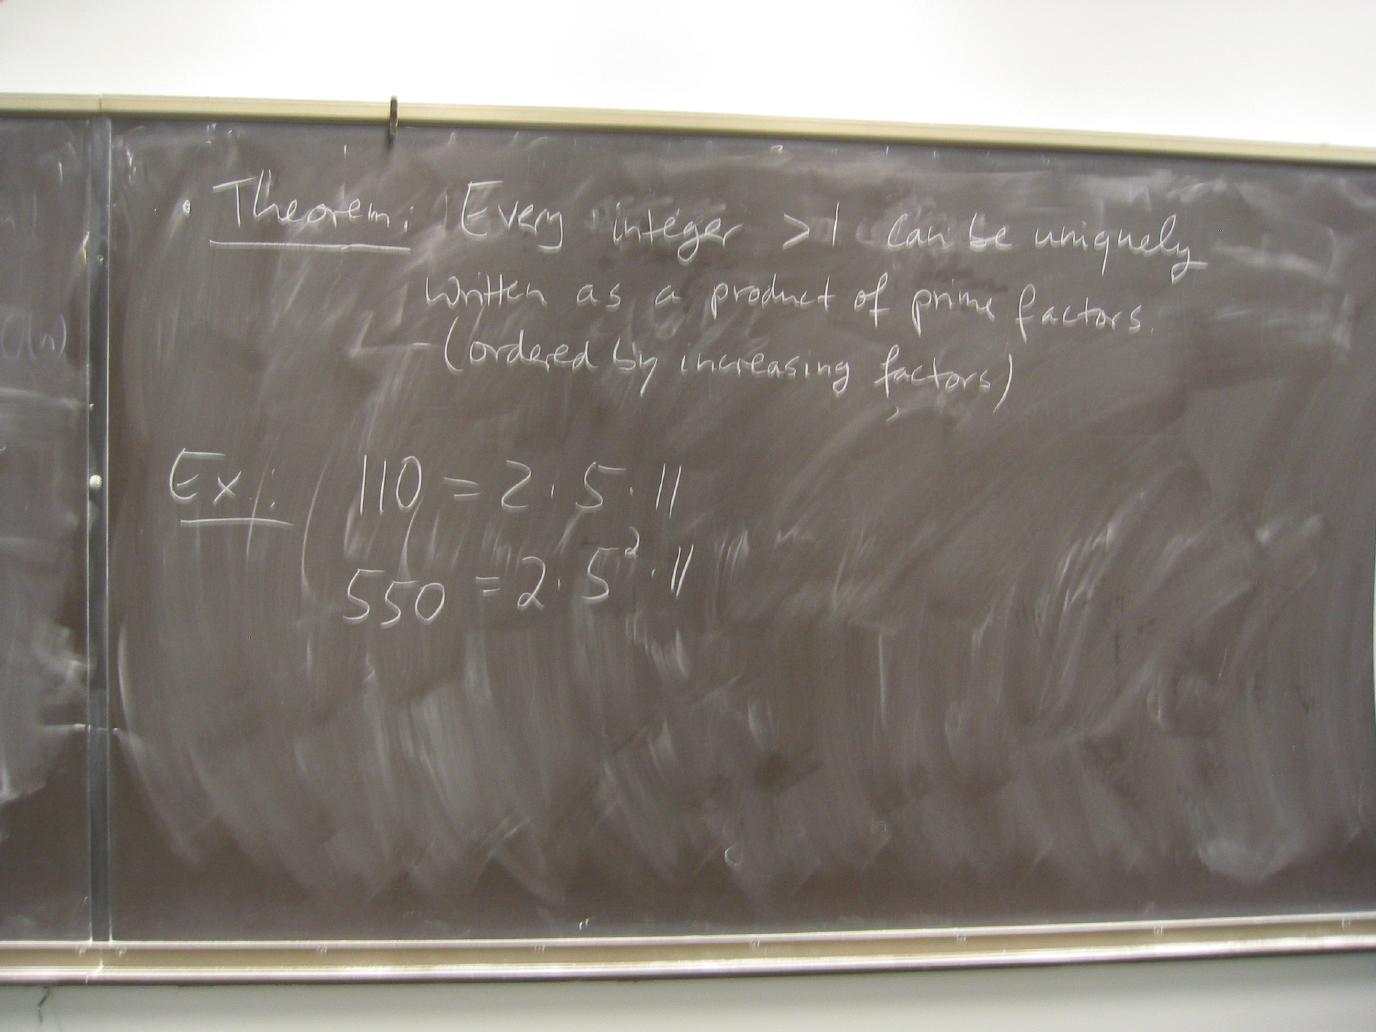 O(n)
• Theorem: Every integer >1 can be uniquely
written as a product of prime factors.
(ordered by increasing factors)
Ex: 110 = 2 · 5 · 11
550 = 2 · 5² · 11